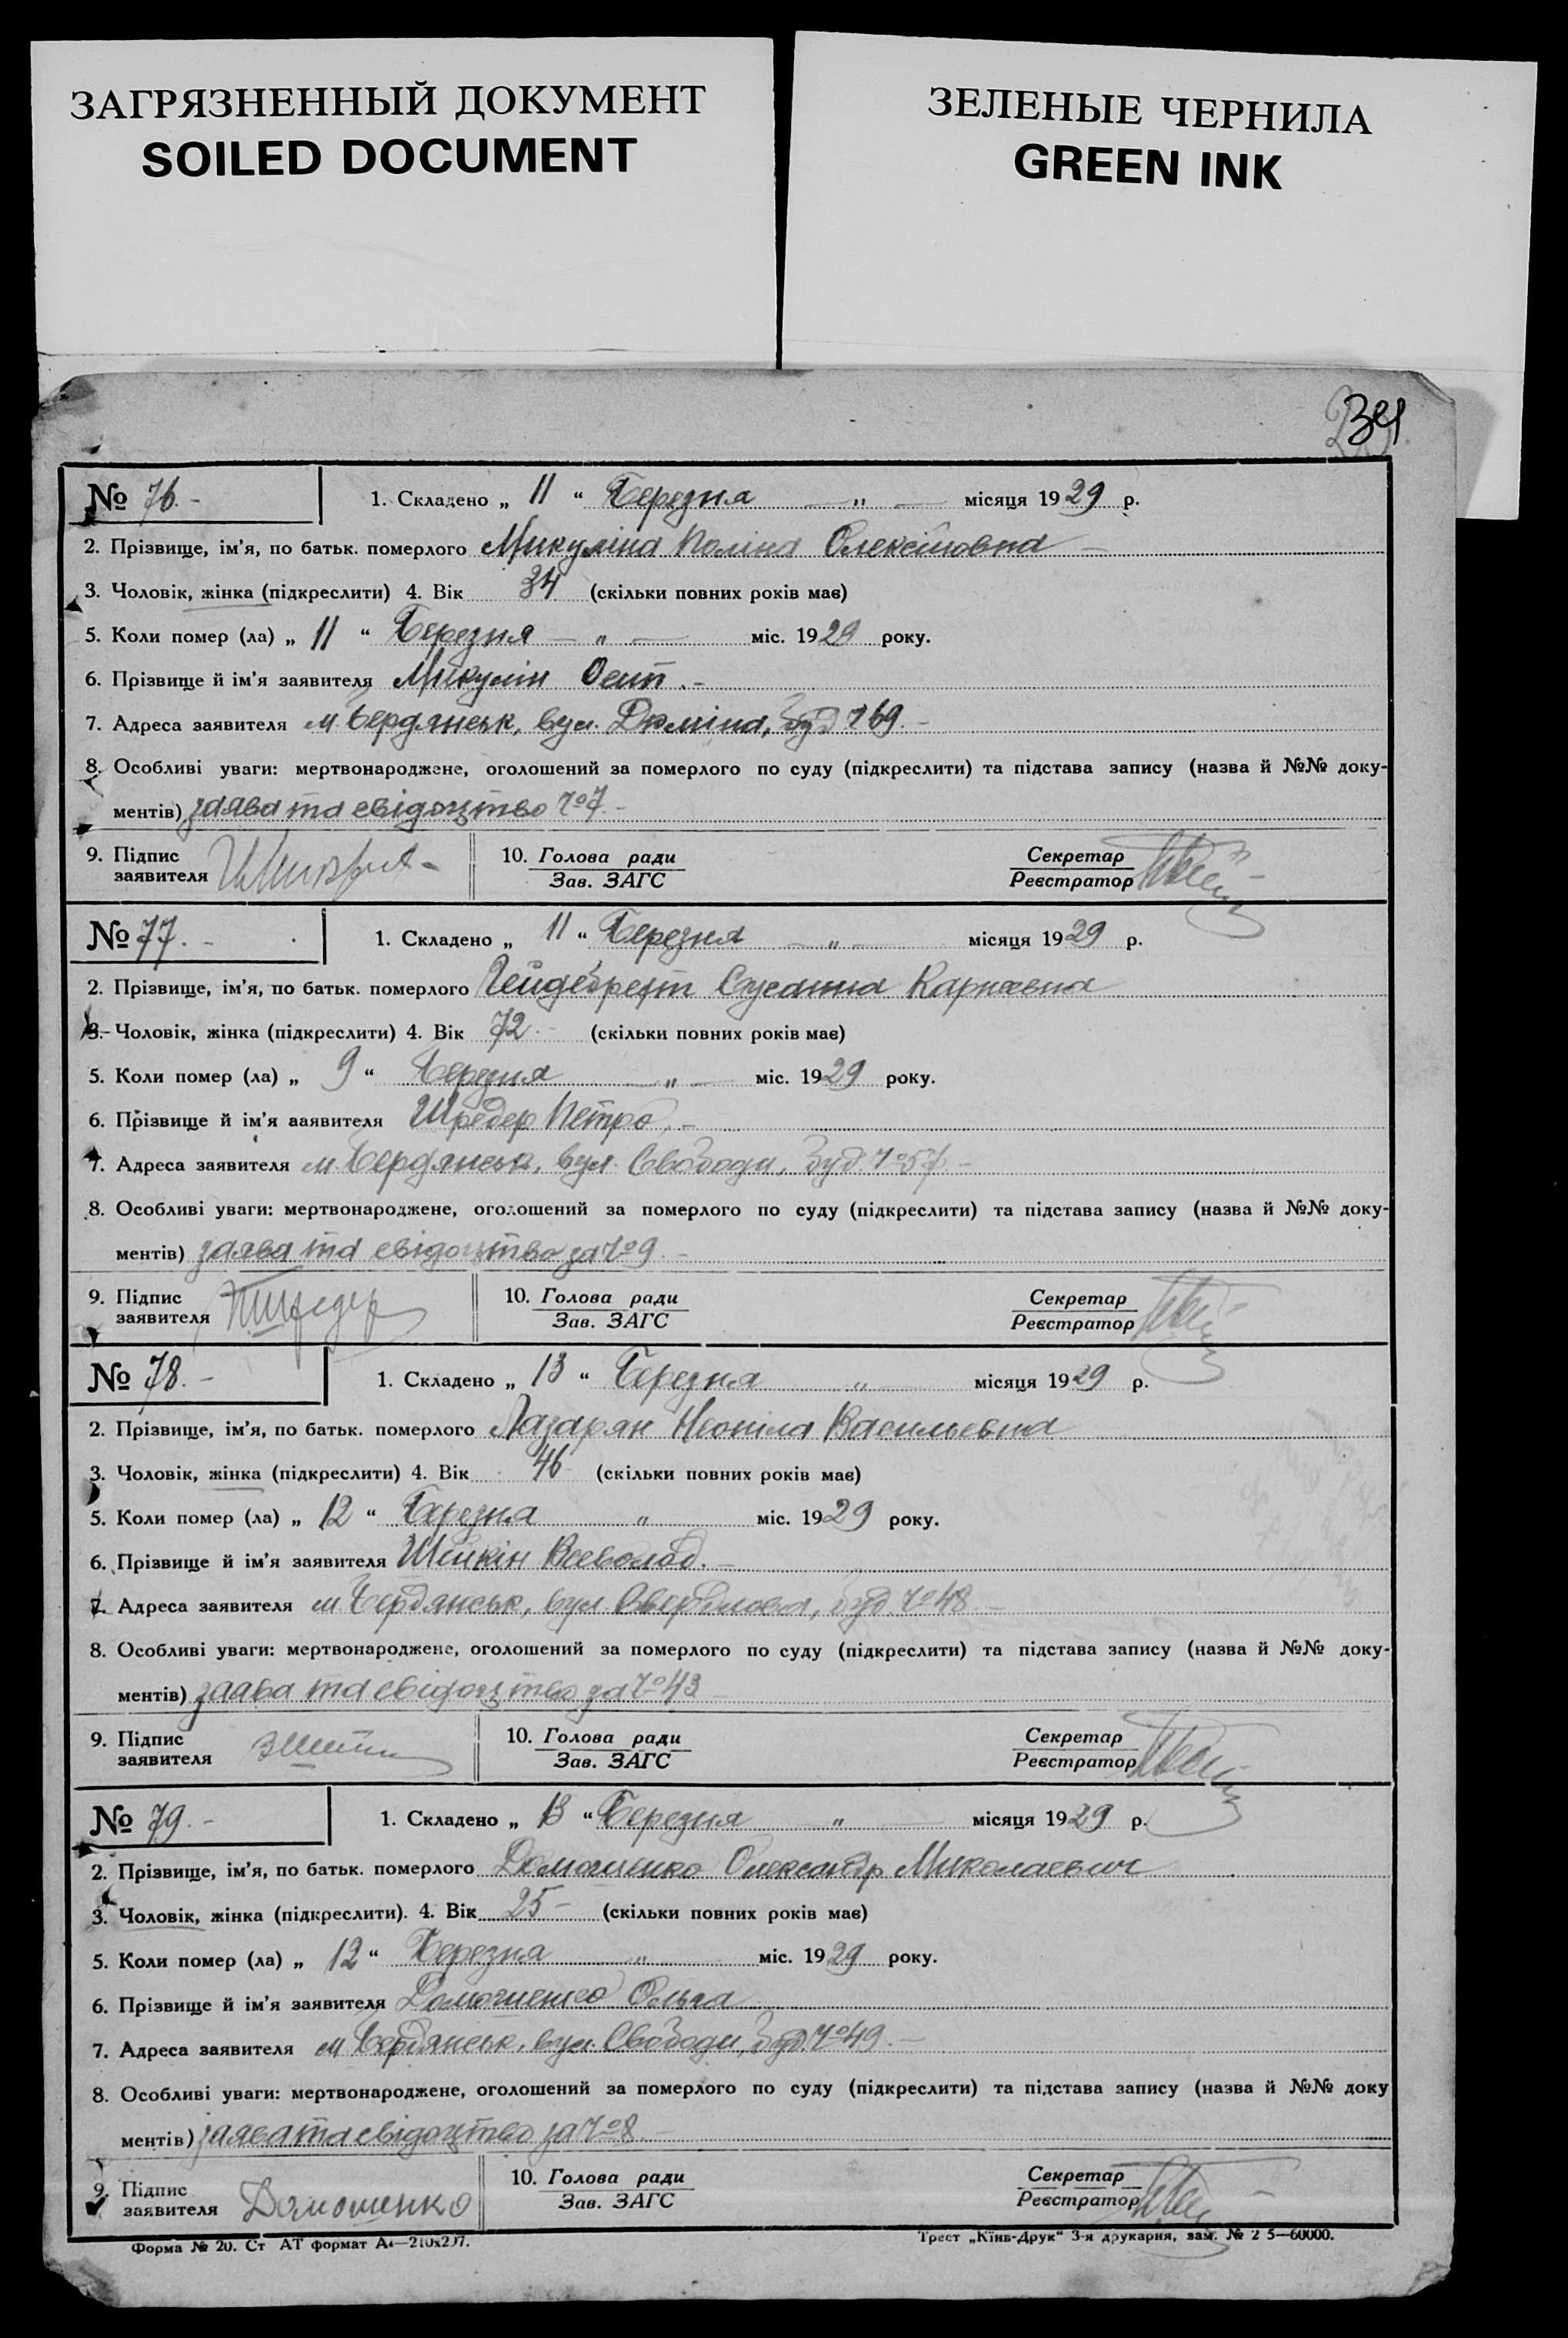 ЗАГРЯЗНЕННЫЙ ДОКУМЕНТ
SOILED DOCUMENT
ЗЕЛЕНЫЕ ЧЕРНИЛА
GREEN INK
34
№ 76.- 1. Складено „ 11 “ Березня — „ — місяця 1929 р.
2. Прізвище, ім'я, по батьк. померлого Микуліна Поліна Олексіїовна —
3. Чоловік, жінка (підкреслити) 4. Вік 34 (скільки повних років має)
5. Коли помер (ла) „ 11 “ Березня — „ — міс. 1929 року.
6. Прізвище й ім'я заявителя Микулін Осип.-
7. Адреса заявителя м. Бердянськ, вул. Дюміна, буд 169.-
8. Особливі уваги: мертвонароджене, оголошений за померлого по суду (підкреслити) та підстава запису (назва й №№ доку-
ментів) заява та свідоцтво №7.-
9. Підпис заявителя 10. Голова ради Зав. ЗАГС Секретар Реєстратор
№ 77.- 1. Складено „ 11 “ Березня — „ — місяця 1929 р.
2. Прізвище, ім'я, по батьк. померлого Гейдебрехт Сусанна Карповна
3. Чоловік, жінка (підкреслити) 4. Вік 72.- (скільки повних років має)
5. Коли помер (ла) „ 9 “ Березня — „ — міс. 1929 року.
6. Прізвище й ім'я заявителя Шредер Петро.-
7. Адреса заявителя м. Бердянськ, вул. Свободи, буд. №57 -
8. Особливі уваги: мертвонароджене, оголошений за померлого по суду (підкреслити) та підстава запису (назва й №№ доку-
ментів) заява та свідоцтво за №9.-
9. Підпис заявителя ПШредер 10. Голова ради Зав. ЗАГС Секретар Реєстратор
№ 78.- 1. Складено „ 13 “ Березня „ місяця 1929 р.
2. Прізвище, ім'я, по батьк. померлого Лазарян Неоніла Васильевна
3. Чоловік, жінка (підкреслити) 4. Вік 46 (скільки повних років має)
5. Коли помер (ла) „ 12 “ Березня „ міс. 1929 року.
6. Прізвище й ім'я заявителя Всеволод.-
7. Адреса заявителя м. Бердянськ, вул. Свердлова, буд. №48 -
8. Особливі уваги: мертвонароджене, оголошений за померлого по суду (підкреслити) та підстава запису (назва й №№ доку-
ментів) заява та свідоцтво за №43 -
9. Підпис заявителя 10. Голова ради Зав. ЗАГС Секретар Реєстратор
№ 79.- 1. Складено „ 13 “ Березня „ місяця 1929 р.
2. Прізвище, ім'я, по батьк. померлого Домошенко Олександр Миколаевич
3. Чоловік, жінка (підкреслити). 4. Вік 25- (скільки повних років має)
5. Коли помер (ла) „ 12 “ Березня „ міс. 1929 року.
6. Прізвище й ім'я заявителя Домошенко Ольга
7. Адреса заявителя м. Бердянськ, вул. Свободи, буд. №49.-
8. Особливі уваги: мертвонароджене, оголошений за померлого по суду (підкреслити) та підстава запису (назва й №№ доку
ментів) заява та свідоцтво за №8.-
9. Підпис заявителя Домошенко 10. Голова ради Зав. ЗАГС Секретар Реєстратор
Форма № 20. Ст АТ формат А4—210х297.
Трест „Київ-Друк“ 3-я друкарня, зам. № 2 5—60000.